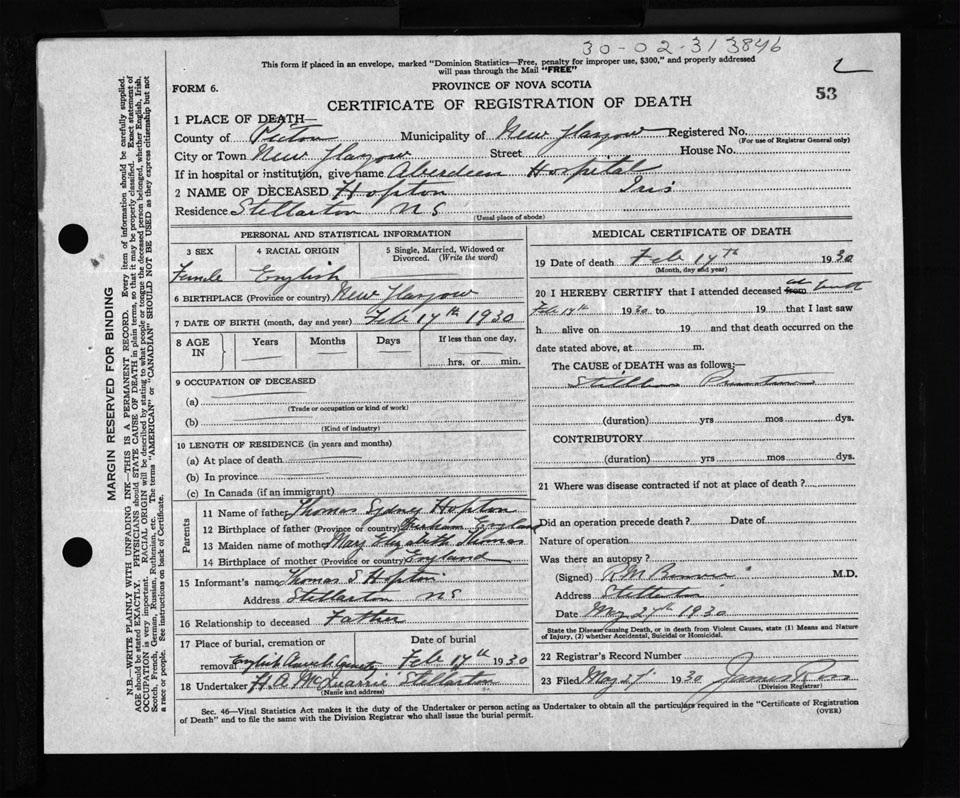 30-02-313846
This form if placed in an envelope, marked "Dominion Statistics—Free, penalty for improper use, $300," and properly addressed
will pass through the Mail "FREE"
2
FORM 6.
PROVINCE OF NOVA SCOTIA
53
CERTIFICATE OF REGISTRATION OF DEATH
1 PLACE OF DEATH—
County of Pictou Municipality of New Glasgow Registered No.
(For use of Registrar General only)
City or Town New Glasgow Street House No.
If in hospital or institution, give name Aberdeen Hospital
2 NAME OF DECEASED Hopton Iris
Residence Stellarton N S
(Usual place of abode)
PERSONAL AND STATISTICAL INFORMATION
3 SEX 4 RACIAL ORIGIN 5 Single, Married, Widowed or
Divorced. (Write the word)
Female English
6 BIRTHPLACE (Province or country) New Glasgow
7 DATE OF BIRTH (month, day and year) Feb 17th 1930
8 AGE IN Years Months Days If less than one day,
hrs. or min.
9 OCCUPATION OF DECEASED
(a)
(Trade or occupation or kind of work)
(b)
(Kind of industry)
10 LENGTH OF RESIDENCE (in years and months)
(a) At place of death
(b) In province
(c) In Canada (if an immigrant)
Parents
11 Name of father Thomas Sydney Hopton
12 Birthplace of father (Province or country) Durham England
13 Maiden name of mother Mary Elizabeth Thomas
14 Birthplace of mother (Province or country) England
15 Informant's name Thomas S Hopton
Address Stellarton N S
16 Relationship to deceased Father
17 Place of burial, cremation or Date of burial
removal English Church Cemetry Feb 17th 1930
18 Undertaker H. A. McQuarrie Stellarton
(Name and address)
MEDICAL CERTIFICATE OF DEATH
19 Date of death Feb 17th 1930
(Month, day and year)
20 I HEREBY CERTIFY that I attended deceased from at birth
Feb 17th 1930 to 19 that I last saw
h alive on 19 and that death occurred on the
date stated above, at m.
The CAUSE of DEATH was as follows:—
Stillborn
(duration) yrs mos dys.
CONTRIBUTORY
(duration) yrs mos dys.
21 Where was disease contracted if not at place of death?
Did an operation precede death? Date of
Nature of operation
Was there an autopsy?
(Signed) M.D.
Address Stellarton
Date May 27th 1930
State the Disease causing Death, or in death from Violent Causes, state (1) Means and Nature
of Injury, (2) whether Accidental, Suicidal or Homicidal.
22 Registrar's Record Number
23 Filed May 1930 James Ross
(Division Registrar)
Sec. 46—Vital Statistics Act makes it the duty of the Undertaker or person acting as Undertaker to obtain all the particulars required in the "Certificate of Registration
of Death" and to file the same with the Division Registrar who shall issue the burial permit.
(OVER)
MARGIN RESERVED FOR BINDING
N.B.—WRITE PLAINLY WITH UNFADING INK—THIS IS A PERMANENT RECORD. Every item of information should be carefully supplied.
AGE should be stated EXACTLY. PHYSICIANS should STATE CAUSE OF DEATH in plain terms, so that it may be properly classified. Exact statement of
OCCUPATION is very important. RACIAL ORIGIN will be described by stating to what people or tongue the deceased person belonged, whether English, Irish,
Scotch, French, German, Russian, Ruthenian, etc. The terms "AMERICAN" or "CANADIAN" SHOULD NOT BE USED as they express citizenship but not
a race or people. See instructions on back of Certificate.